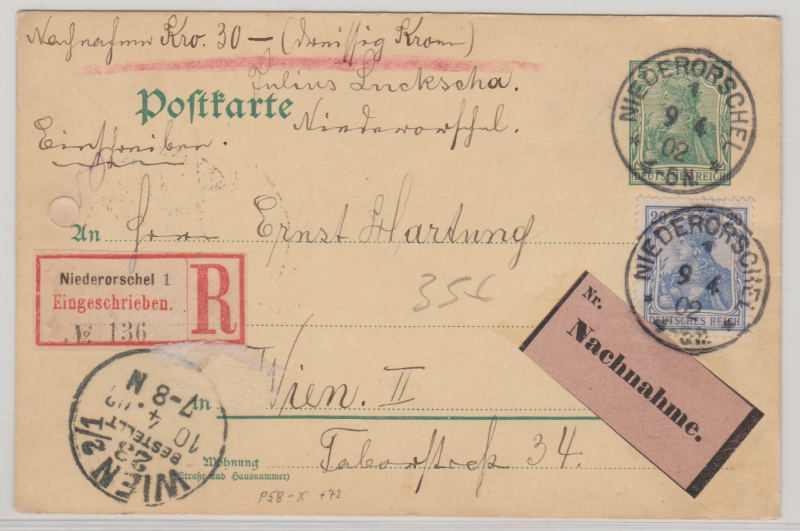 Nachnahme Kro. 30 — (dreissig Kronen)
Julius Luckscha.
Postkarte
Niederorschel.
Einschreiben.
DEUTSCHES REICH
NIEDERORSCHEL
1
9 4
02
* 4-5N. *
An Herrn Ernst Hartung
20 20
DEUTSCHES REICH
NIEDERORSCHEL
1
9 4
02
Niederorschel 1
Eingeschrieben.
№ 136
R
356
Nr.
Nachnahme.
in Wien. II
Taborstraße 34.
Wohnung
(Straße und Hausnummer)
WIEN 2/1
23
BESTELLT
10 4
7-8 N
P58-X +72